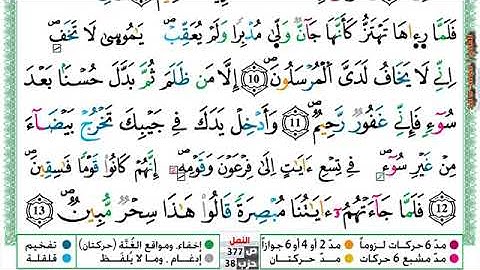 فَلَمَّا رَءَاهَا تَهْتَزُّ كَأَنَّهَا جَآنٌّ وَلَّىٰ مُدْبِرًا وَلَمْ يُعَقِّبْ يَٰمُوسَىٰ لَا تَخَفْ
إِنِّي لَا يَخَافُ لَدَيَّ الْمُرْسَلُونَ ⑩ إِلَّا مَن ظَلَمَ ثُمَّ بَدَّلَ حُسْنًا بَعْدَ
سُوٓءٍ فَإِنِّي غَفُورٌ رَّحِيمٌ ⑪ وَأَدْخِلْ يَدَكَ فِي جَيْبِكَ تَخْرُجْ بَيْضَآءَ
مِنْ غَيْرِ سُوٓءٍ فِي تِسْعِ ءَايَٰتٍ إِلَىٰ فِرْعَوْنَ وَقَوْمِهِ إِنَّهُمْ كَانُوا قَوْمًا فَٰسِقِينَ
⑫ فَلَمَّا جَآءَتْهُمْ ءَايَٰتُنَا مُبْصِرَةً قَالُوا هَٰذَا سِحْرٌ مُّبِينٌ ⑬
مدّ 6 حركات لزوماً مدّ 2 أو 4 أو 6 جوازاً إخفاء، ومواقع الغُنَّة (حركتان) تفخيم
مدّ مشبع 6 حركات مدّ حركتان إدغام، وما لا يُلفَظ قلقلة
النمل
ص 377
حزب 38